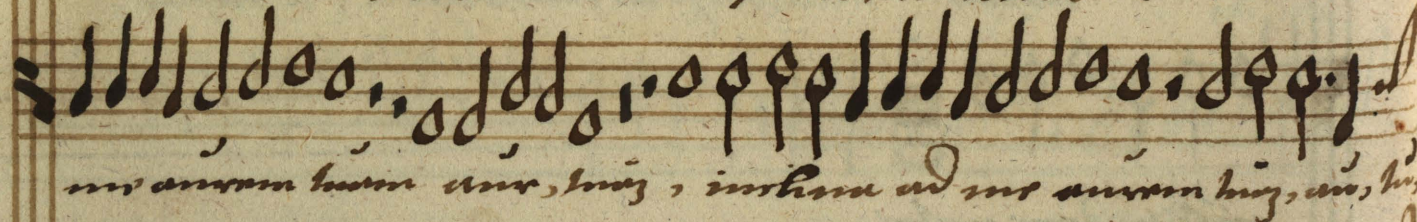 me aurem tuam aur, tuaʒ, inclina ad me aurem tuaʒ, au, tu,